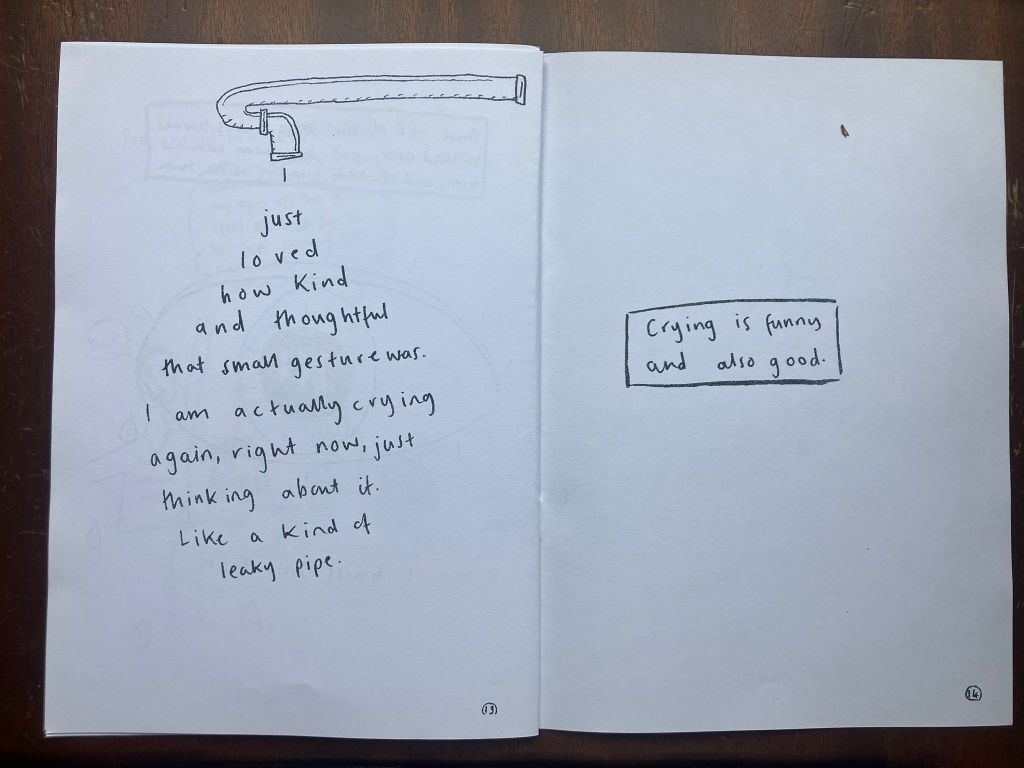 I
just
loved
how kind
and thoughtful
that small gesture was.
I am actually crying
again, right now, just
thinking about it.
Like a kind of
leaky pipe.
13
Crying is funny
and also good.
14